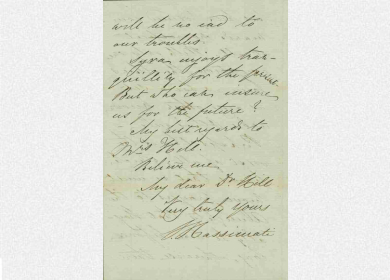 will be no end to
our troubles.
Syra enjoys tran-
quillity for the present
But who can insure
us for the future?
My best regards to
Mrs Hill.
Believe me
My dear Dr Hill
Very truly Yours